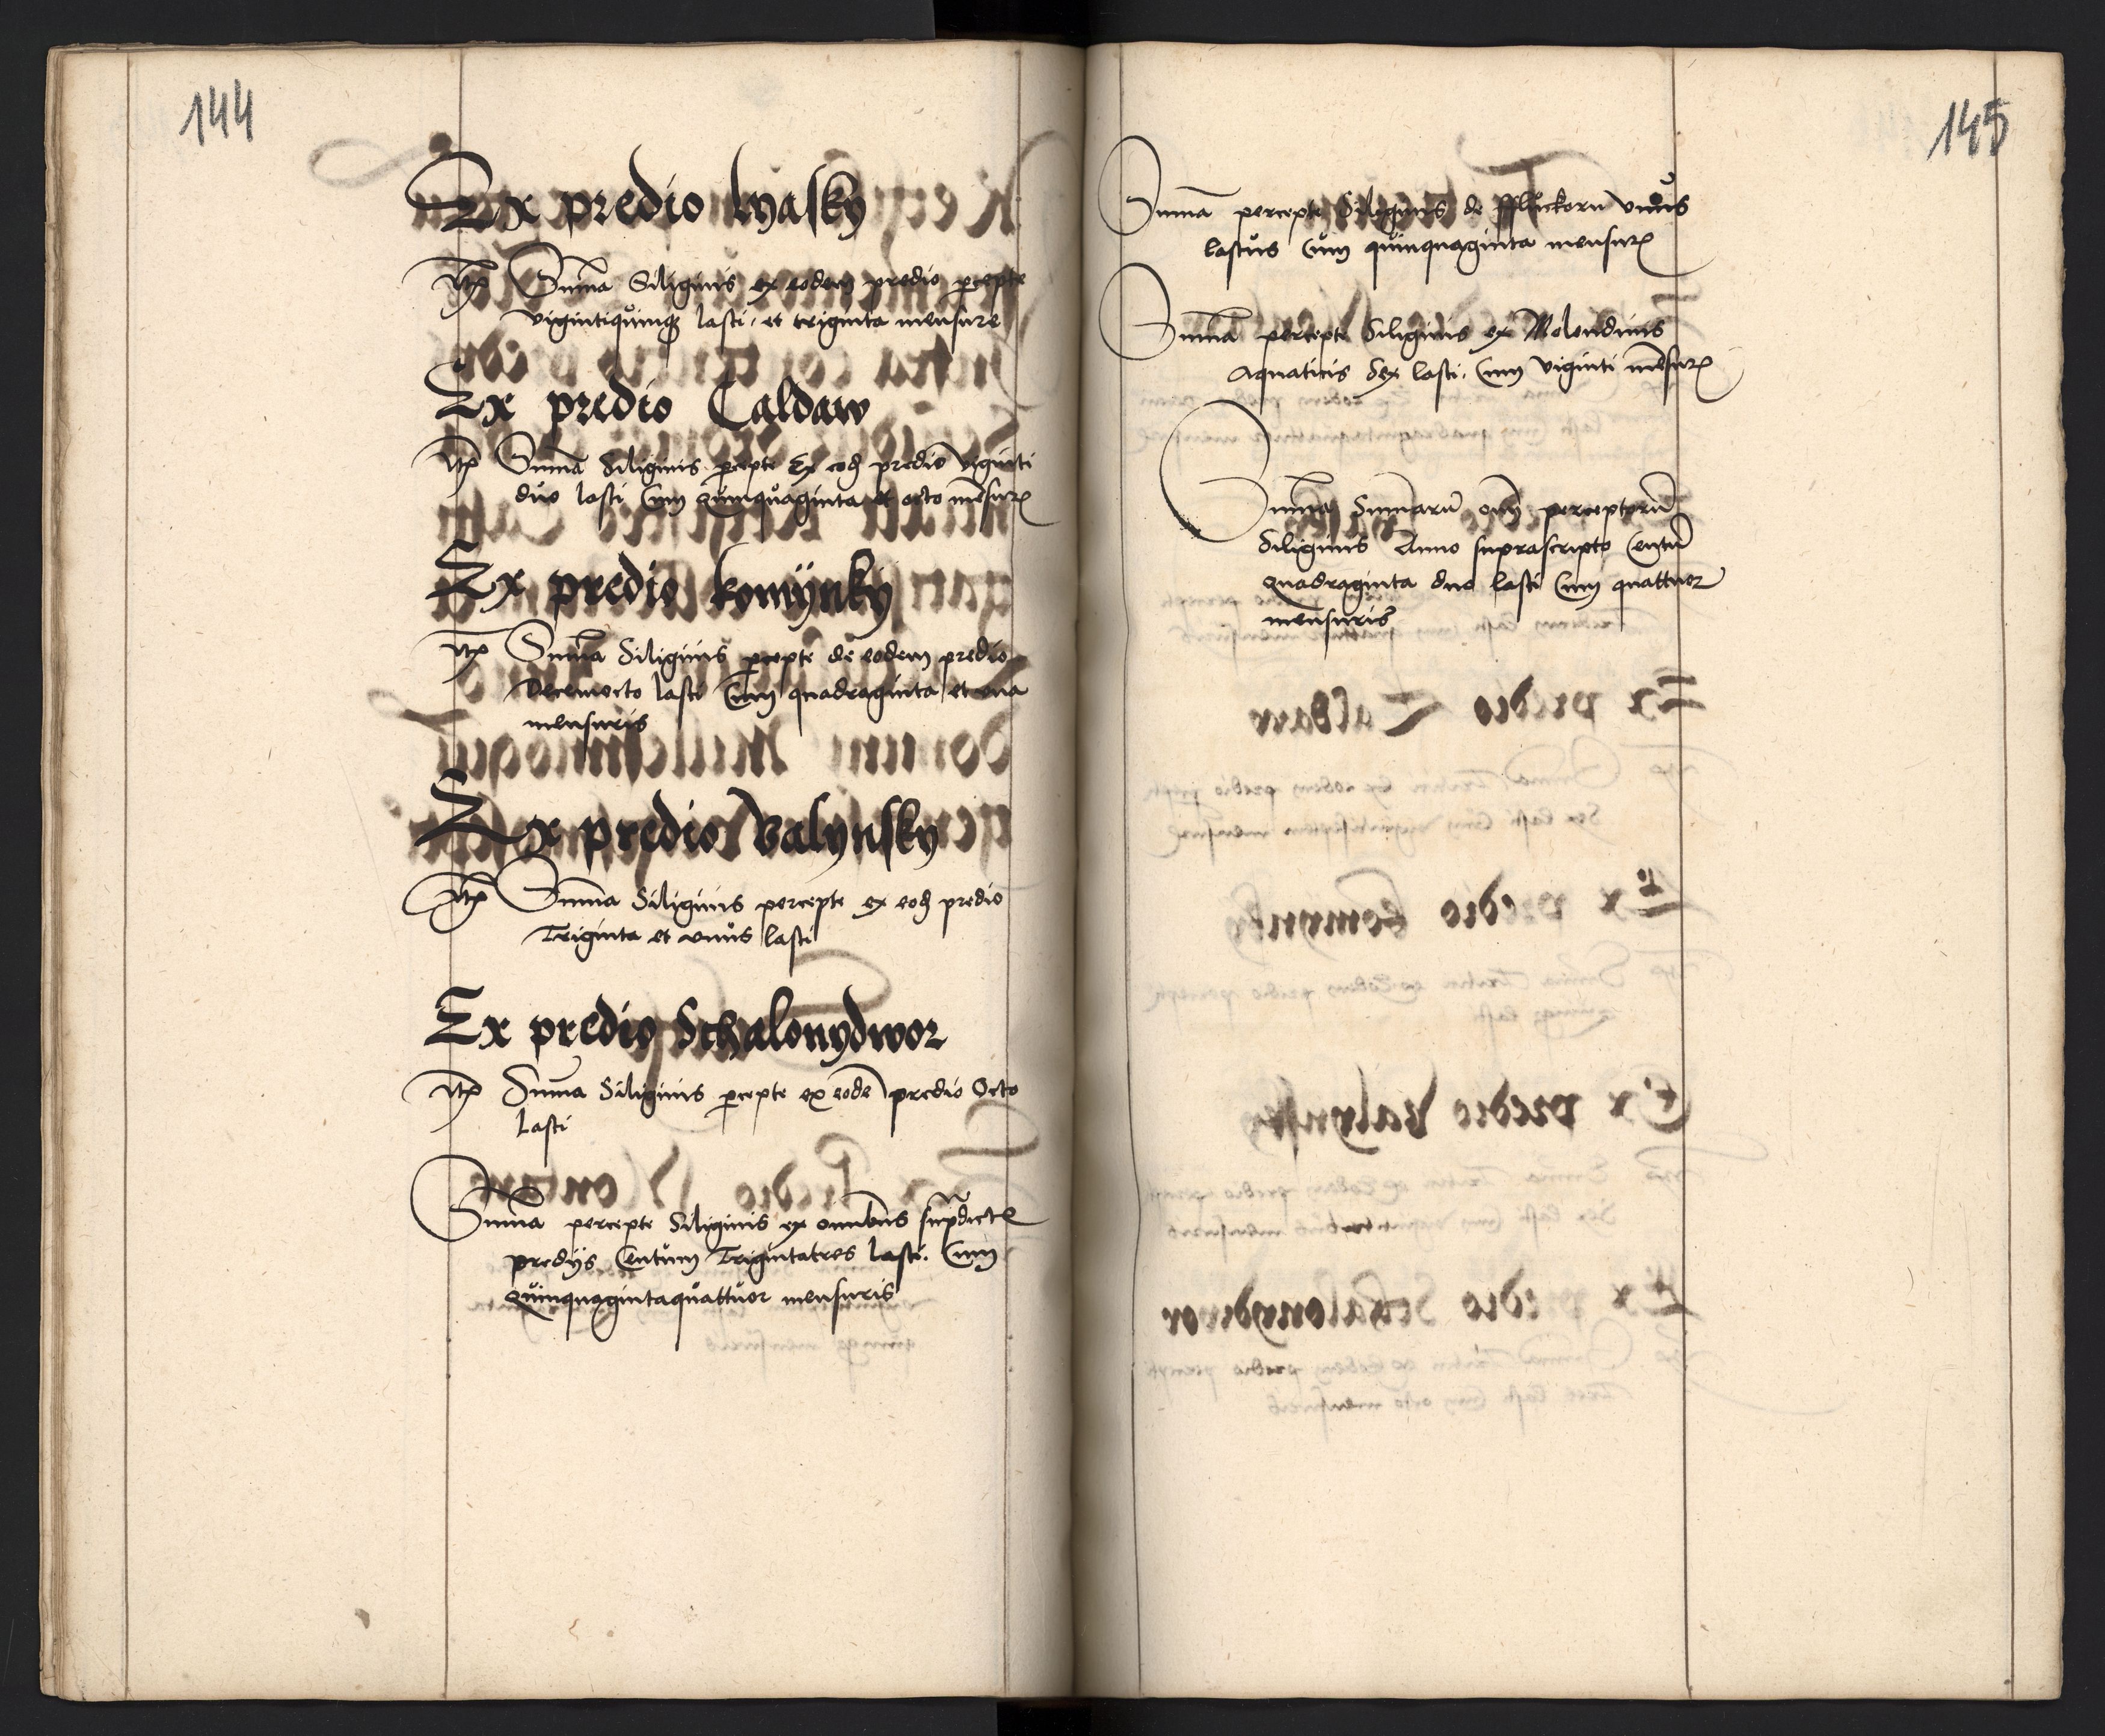 144
Ex predio lyasky
Itꝫ Summa Siliginis ex eodem predio pcepte
vigintiquinqꝫ lasti, et triginta mensure
Ex predio Caldaw
Itꝫ Summa Siliginis pcepte Ex eodꝫ predio viginti
duo lasti Cum Quinquaginta et octo mensurꝭ
Ex predio komÿnky
Itꝫ Summa Siliginis pcepte de eodem predio
Decemocto lasti Cum quadraginta et una
mensuris
Ex predio Valynsky
Itꝫ Summa Siliginis percepte ex eodꝫ predio
Triginta et vnus lasti
Ex predio Schalonydwor
Itꝫ Suma Siliginis pcepte ex eodē predio Octo
Lasti
Summa percepte Siliginis ex omnibus supdictꝭ
predijs Centum Trigintatres lasti. Cum
Quinquagintaquattuor mensuris
145
Suma percepte Siliginis de fflückorn vnus
lastus Cum quinquaginta mensurꝭ
Summa percepte Siliginis ex Molendinis
Aquaticis Sex lasti. Cum viginti mēsurꝭ
Summa Sumarū oīm perceptorū
Siliginis Anno suprascripto Centū
Quadraginta duo lasti Cum quattuor
mensuris